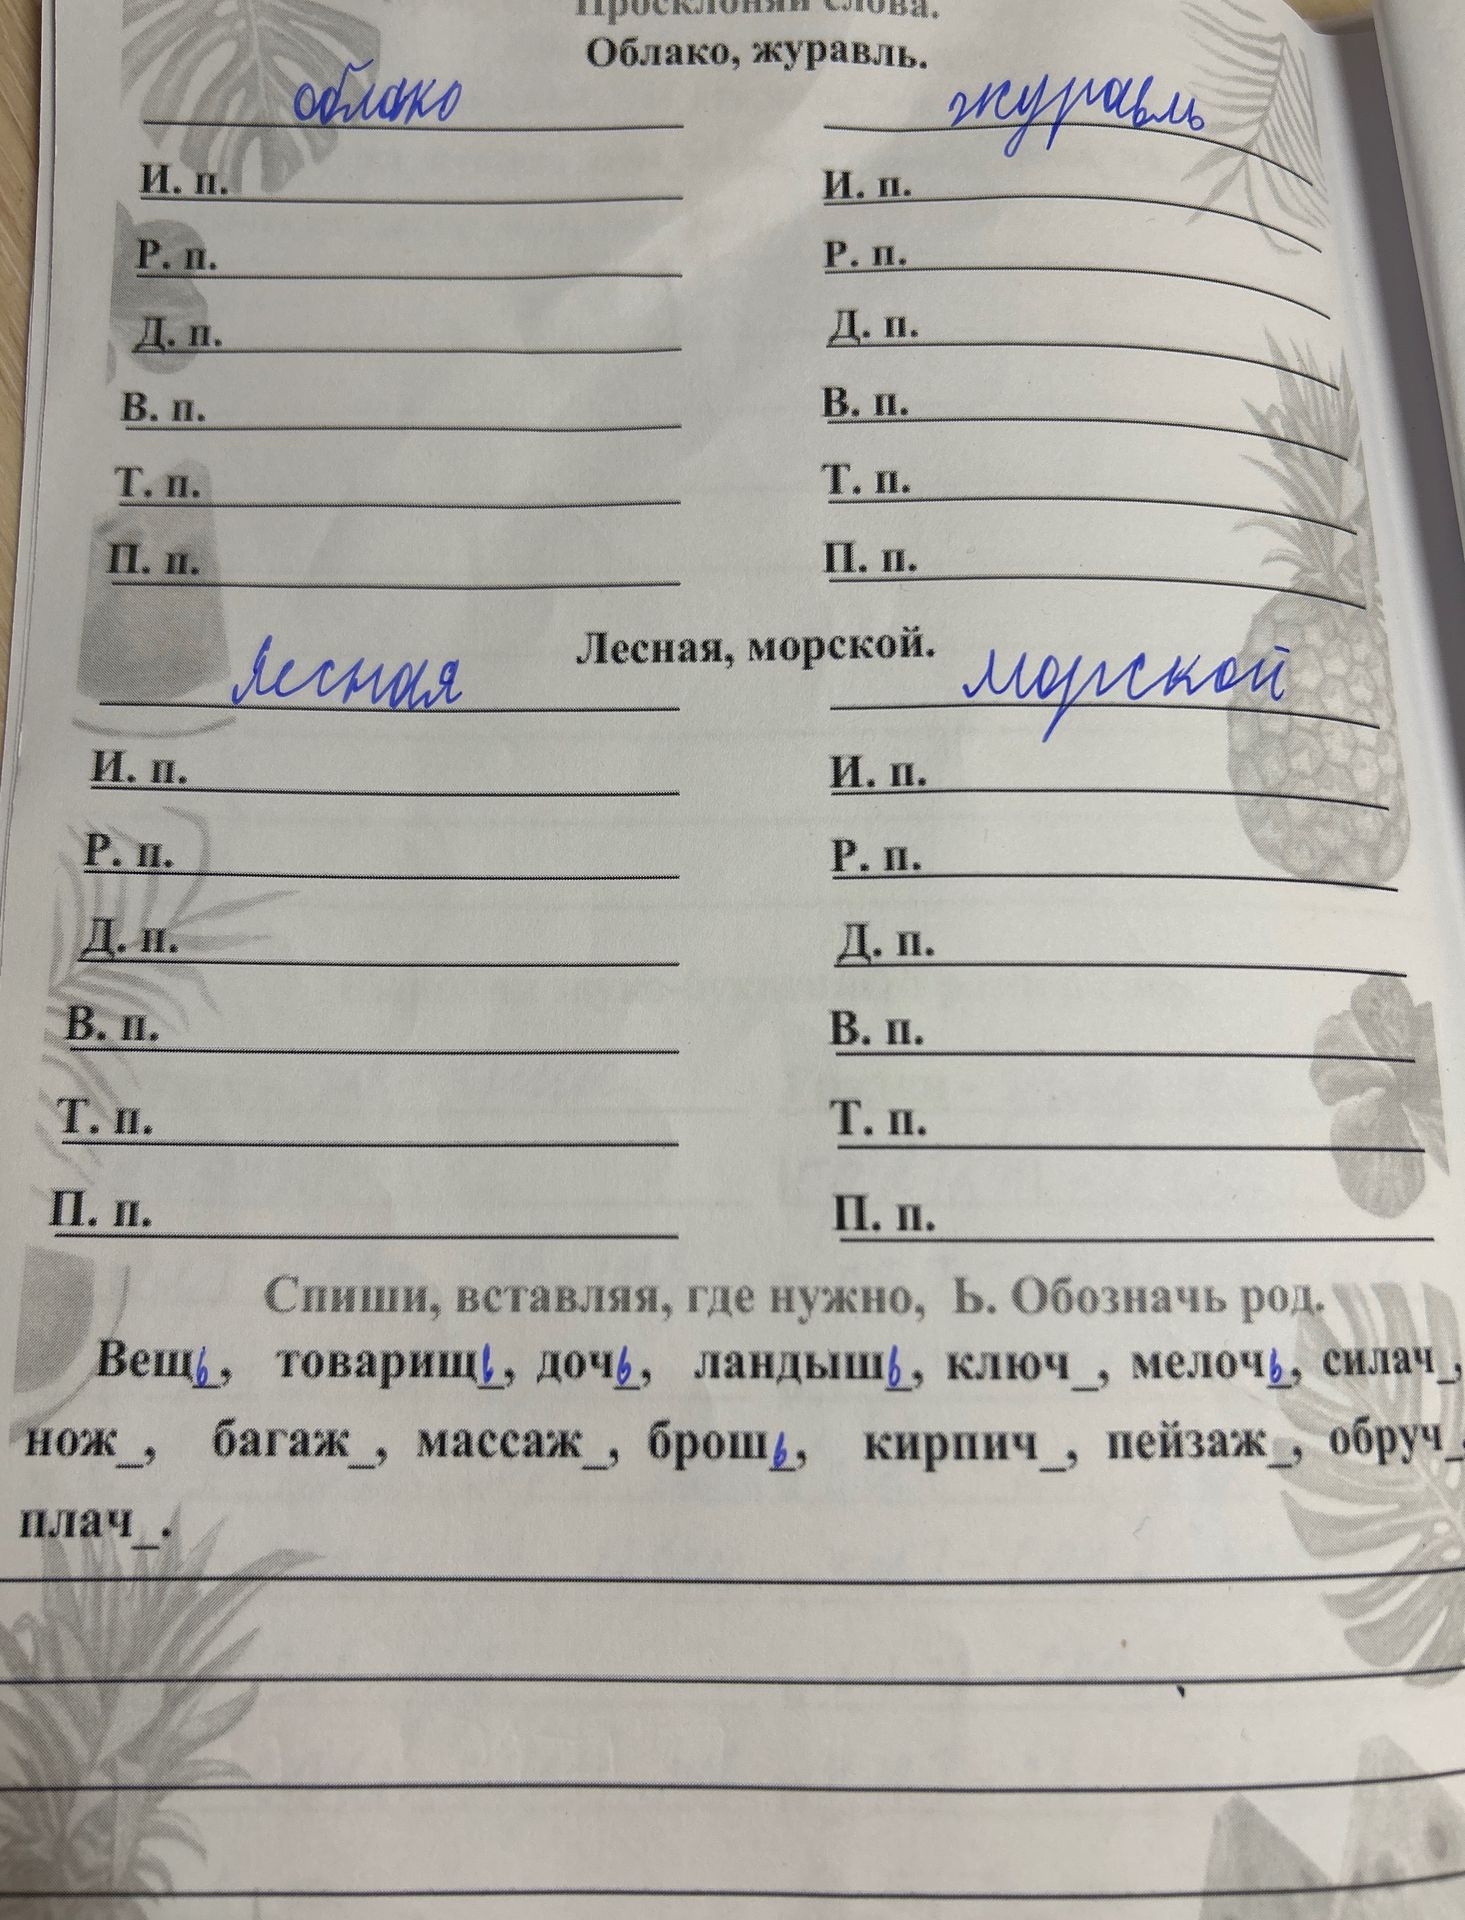 Просклоняй слова.
Облако, журавль.
облако журавль
И. п. И. п.
Р. п. Р. п.
Д. п. Д. п.
В. п. В. п.
Т. п. Т. п.
П. п. П. п.
Лесная, морской.
Лесная морской
И. п. И. п.
Р. п. Р. п.
Д. п. Д. п.
В. п. В. п.
Т. п. Т. п.
П. п. П. п.
Спиши, вставляя, где нужно, Ь. Обозначь род.
Вещь, товарищь, дочь, ландышь, ключ_, мелочь, силач_,
нож_, багаж_, массаж_, брошь, кирпич_, пейзаж_, обруч_,
плач_.